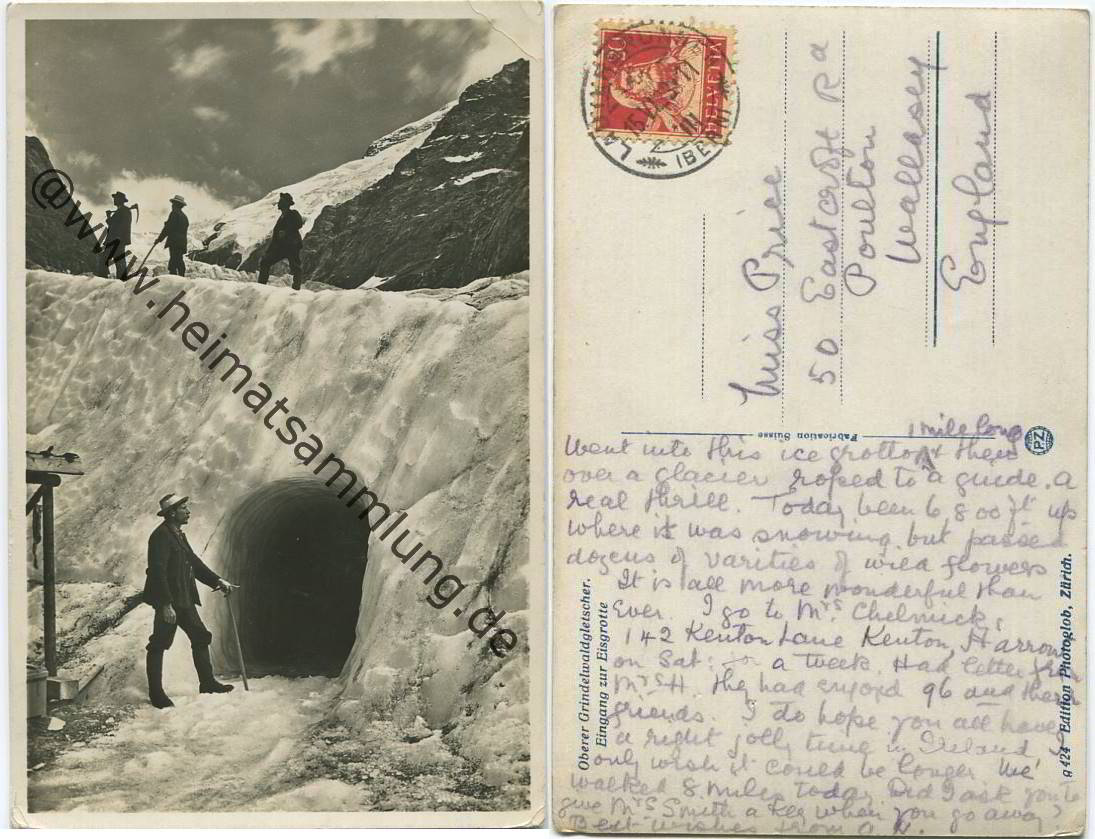 @www.heimatsammlung.de
30
HELVETIA
(BERN)
Miss Price
50 Eastcroft Rd
Poulton
Wallasey
England
Fabrication Suisse
PZ
1 mile long
Went into this ice grotto & then
over a glacier roped to a guide. a
real thrill. Today been 6800 ft up
where it was snowing but passed
dozens of varities of wild flowers
It is all more wonderful than
Ever. I go to Mrs
142 Kenton Lane Kenton, Harrow
on Sat: for a week. Had letter from
Mrs H. They had enjoyd and their
friends. I do hope you all have
a right jolly time in Ireland I
only wish it could be longer. We
walked 8 miles today. Did I ask you to
give Mrs Smith a key when you go away?
Best wishes from
Oberer Grindelwaldgletscher.
Eingang zur Eisgrotte
g 424 Edition Photoglob, Zürich.